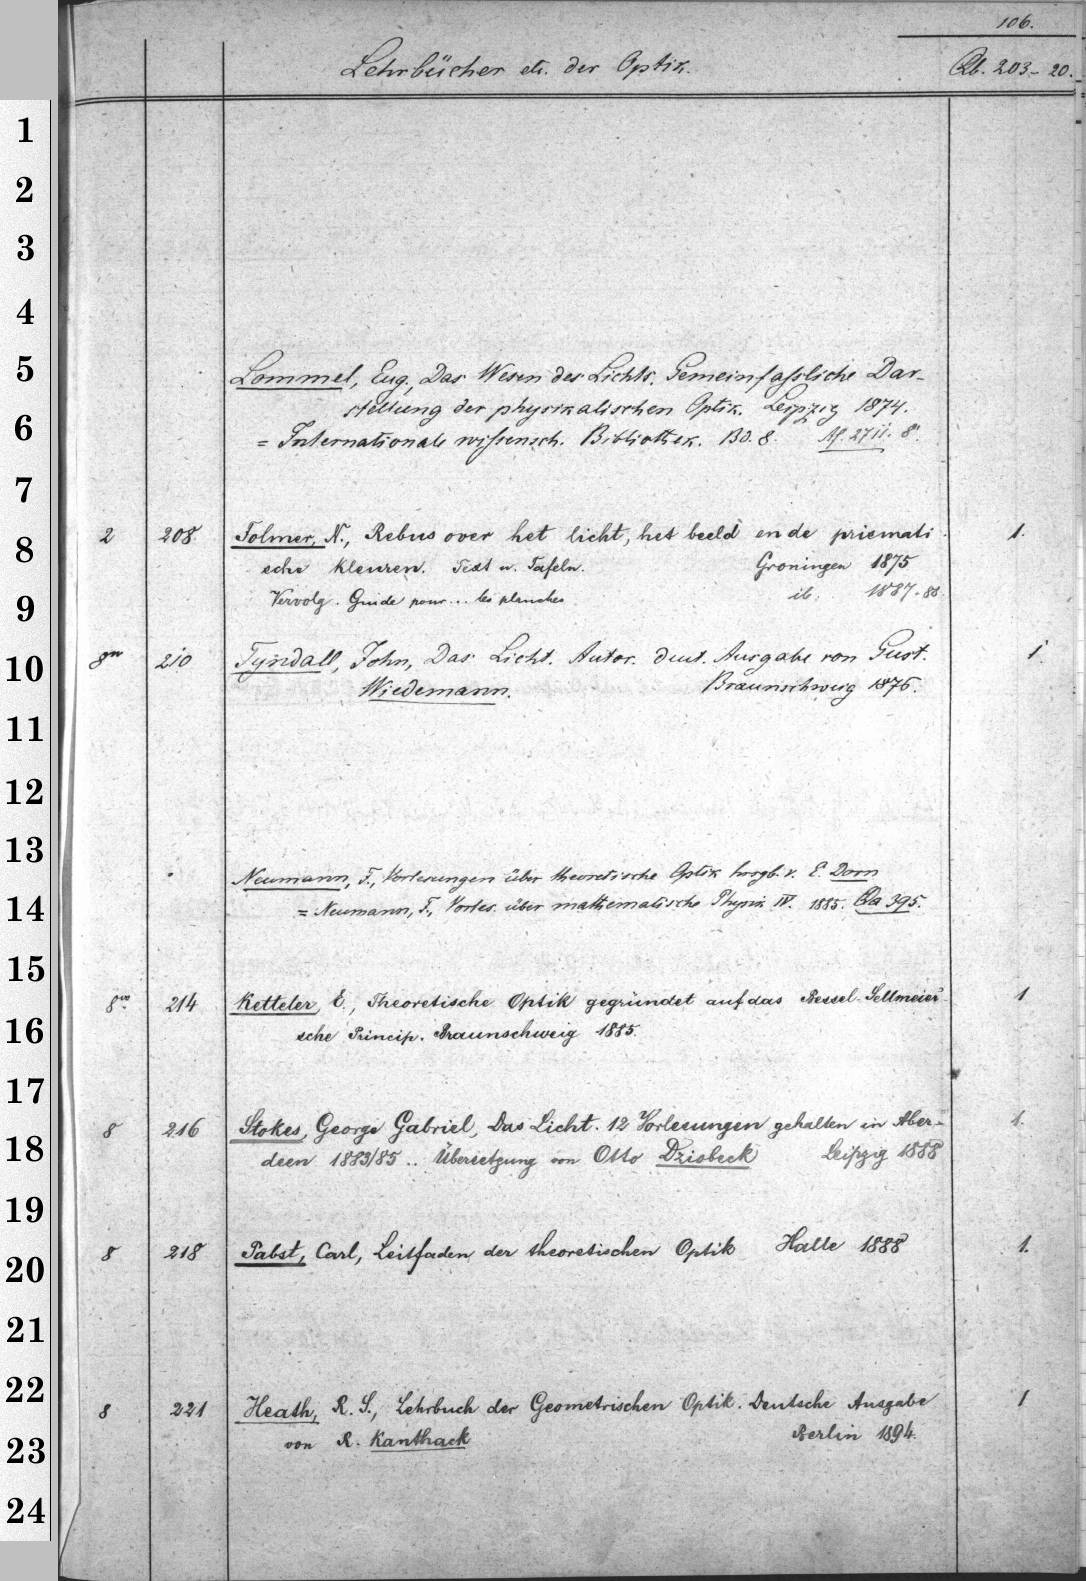 106.
Lehrbücher etc. der Optik.
Qb. 203-20.
1
2
3
4
5
6
7
8
9
10
11
12
13
14
15
16
17
18
19
20
21
22
23
24
Lommel, Eug., Das Wesen des Lichts. Gemeinfassliche Dar-
stellung der physikalischen Optik. Leipzig 1874.
= Internationale wissensch. Bibliothek. Bd. 8.
2 208 Tolmer, N., Rebus over het licht, het beeld en de prismati 1.
sche kleuren. Text u. Tafeln. Groningen 1875
Vervolg. Guide pour... les planches ib. 1887-88.
8vo 210 Tyndall, John, Das Licht. Autor. deut. Ausgabe von Gust. 1.
Wiedemann. Braunschweig 1876.
Neumann, F., Vorlesungen über theoretische Optik hrsgb. v. E. Dorn
= Neumann, F., Vorles. über mathematische Physik IV. 1885. Qa 395.
8vo 214 Ketteler, E., Theoretische Optik gegründet auf das Bessel-Sellmeier' 1
sche Princip. Braunschweig 1885.
8 216 Stokes, George Gabriel, Das Licht. 12 Vorlesungen gehalten in Aber- 1.
deen 1883/85 .. Übersetzung von Otto Dziobeck Leipzig 1888
8 218 Pabst, Carl, Leitfaden der theoretischen Optik Halle 1888 1.
8 221 Heath, R. S., Lehrbuch der Geometrischen Optik. Deutsche Ausgabe 1
von R. Kanthack Berlin 1894.